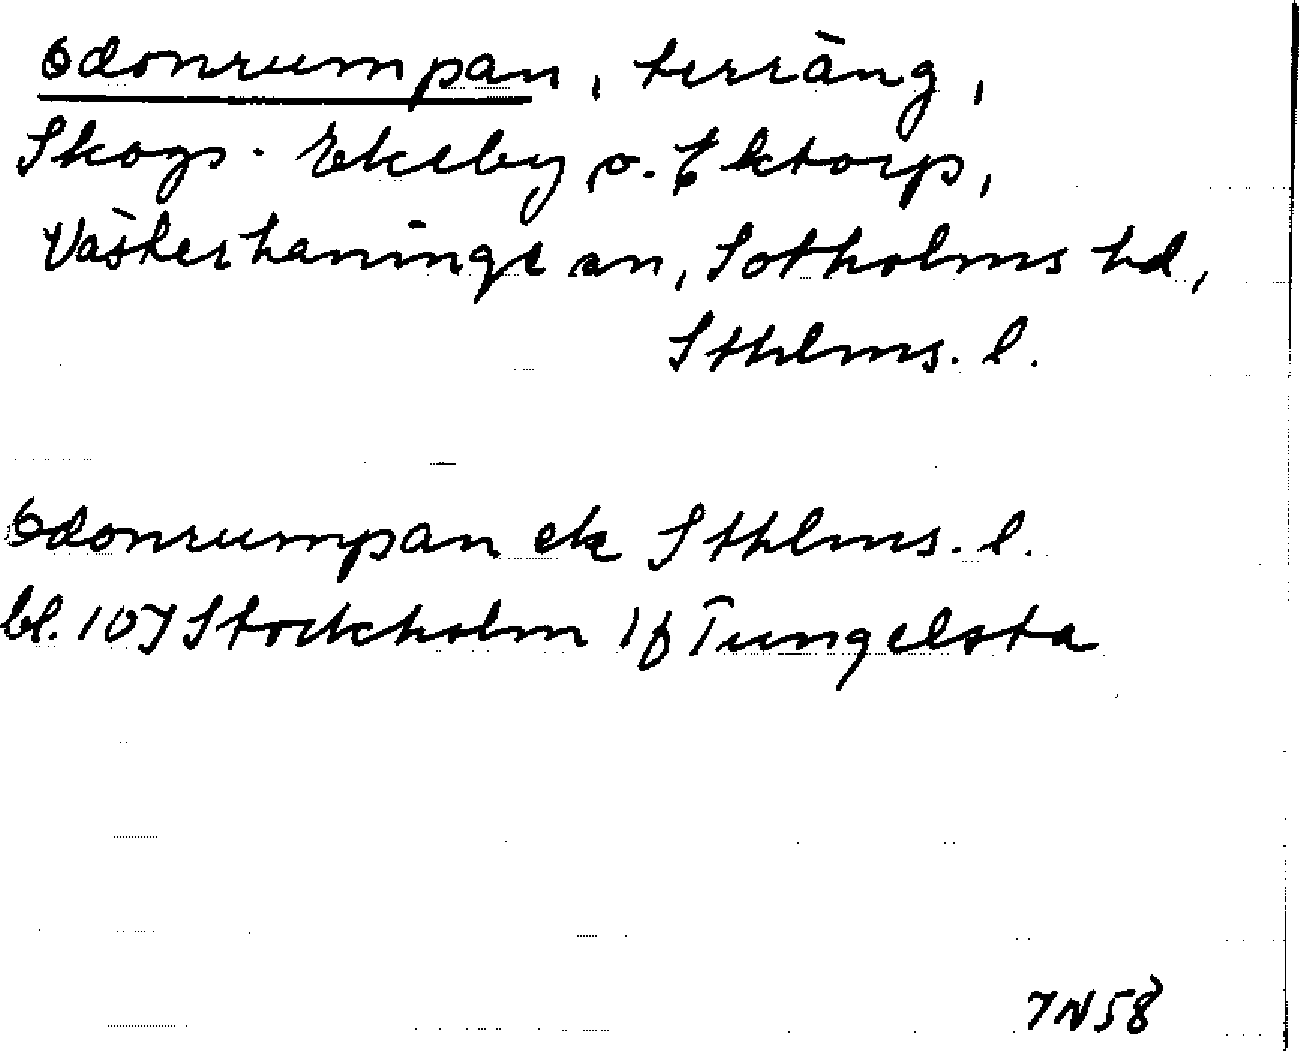 Odonrumpan, terräng,
Skogs-Ekeby o. Ektorp,
Västerhaninge sn, Sotholms hd,
Sthlms. l.
Odonrumpan ek Sthlms. l.
bl. 107 Stockholm 1f Tungelsta
7N58